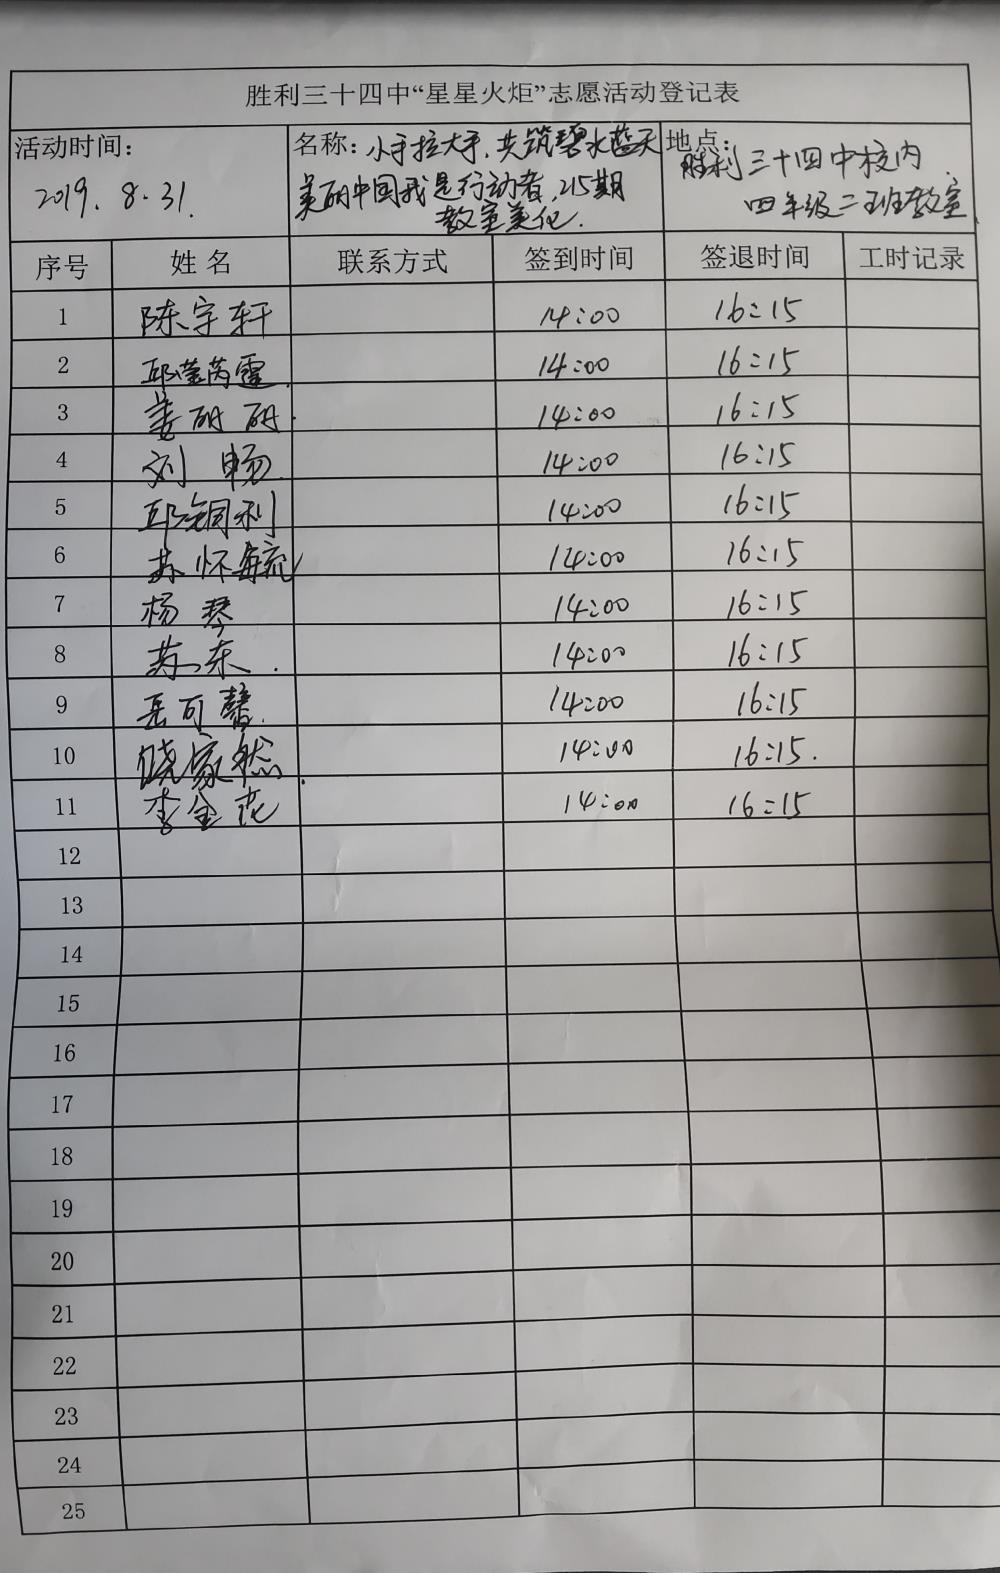 胜利三十四中“星星火炬”志愿活动登记表
活动时间: 2019.8.31.
名称: 小手拉大手,共筑碧水蓝天
美丽中国我是行动者,215期
教室美化.
地点: 胜利三十四中校内
四年级二班教室
序号 姓名 联系方式 签到时间 签退时间 工时记录
1 陈宇轩 14:00 16:15
2 邱滢芮霆 14:00 16:15
3 姜丽丽 14:00 16:15
4 刘畅 14:00 16:15
5 邱铜利 14:00 16:15
6 苏怀毓 14:00 16:15
7 杨琴 14:00 16:15
8 苏东 14:00 16:15
9 岳可馨 14:00 16:15
10 饶家然 14:00 16:15.
11 李金花 14:00 16:15
12
13
14
15
16
17
18
19
20
21
22
23
24
25